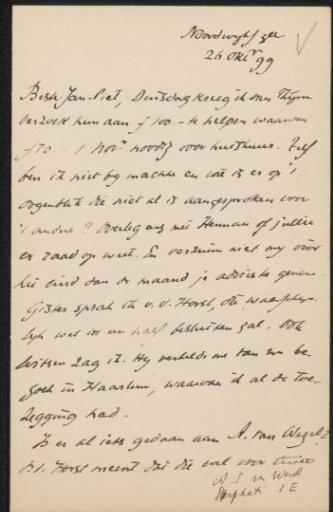 Noordwijk zee
26 Okt'r 99
Beste Jan Piet, Dinsdag kreeg ik van Thijm
verzoek hem aan f 100.- te helpen waarvan
f 70.- 1 Nov' noodig voor huishuur. Zelf
ben ik niet bij machte en wie is er op 't
oogenblik die niet al is aangesproken voor
't andere? Overleg eens met Herman of jullie
er raad op weet. En verzuim niet mij vóór
het eind van de maand je advies te geven.
Gister sprak ik v.d. Horst, die waarschijn-
lijk wel tot een half besluiten zal. Ook
Witsen zag ik. Hij vertelde me van uw be-
zoek in Haarlem, waarvan ik al de toe-
zegging had.
Is er al iets gedaan aan A. van
v.d. Horst meent dat die wel voor
A. S.
Sarphati